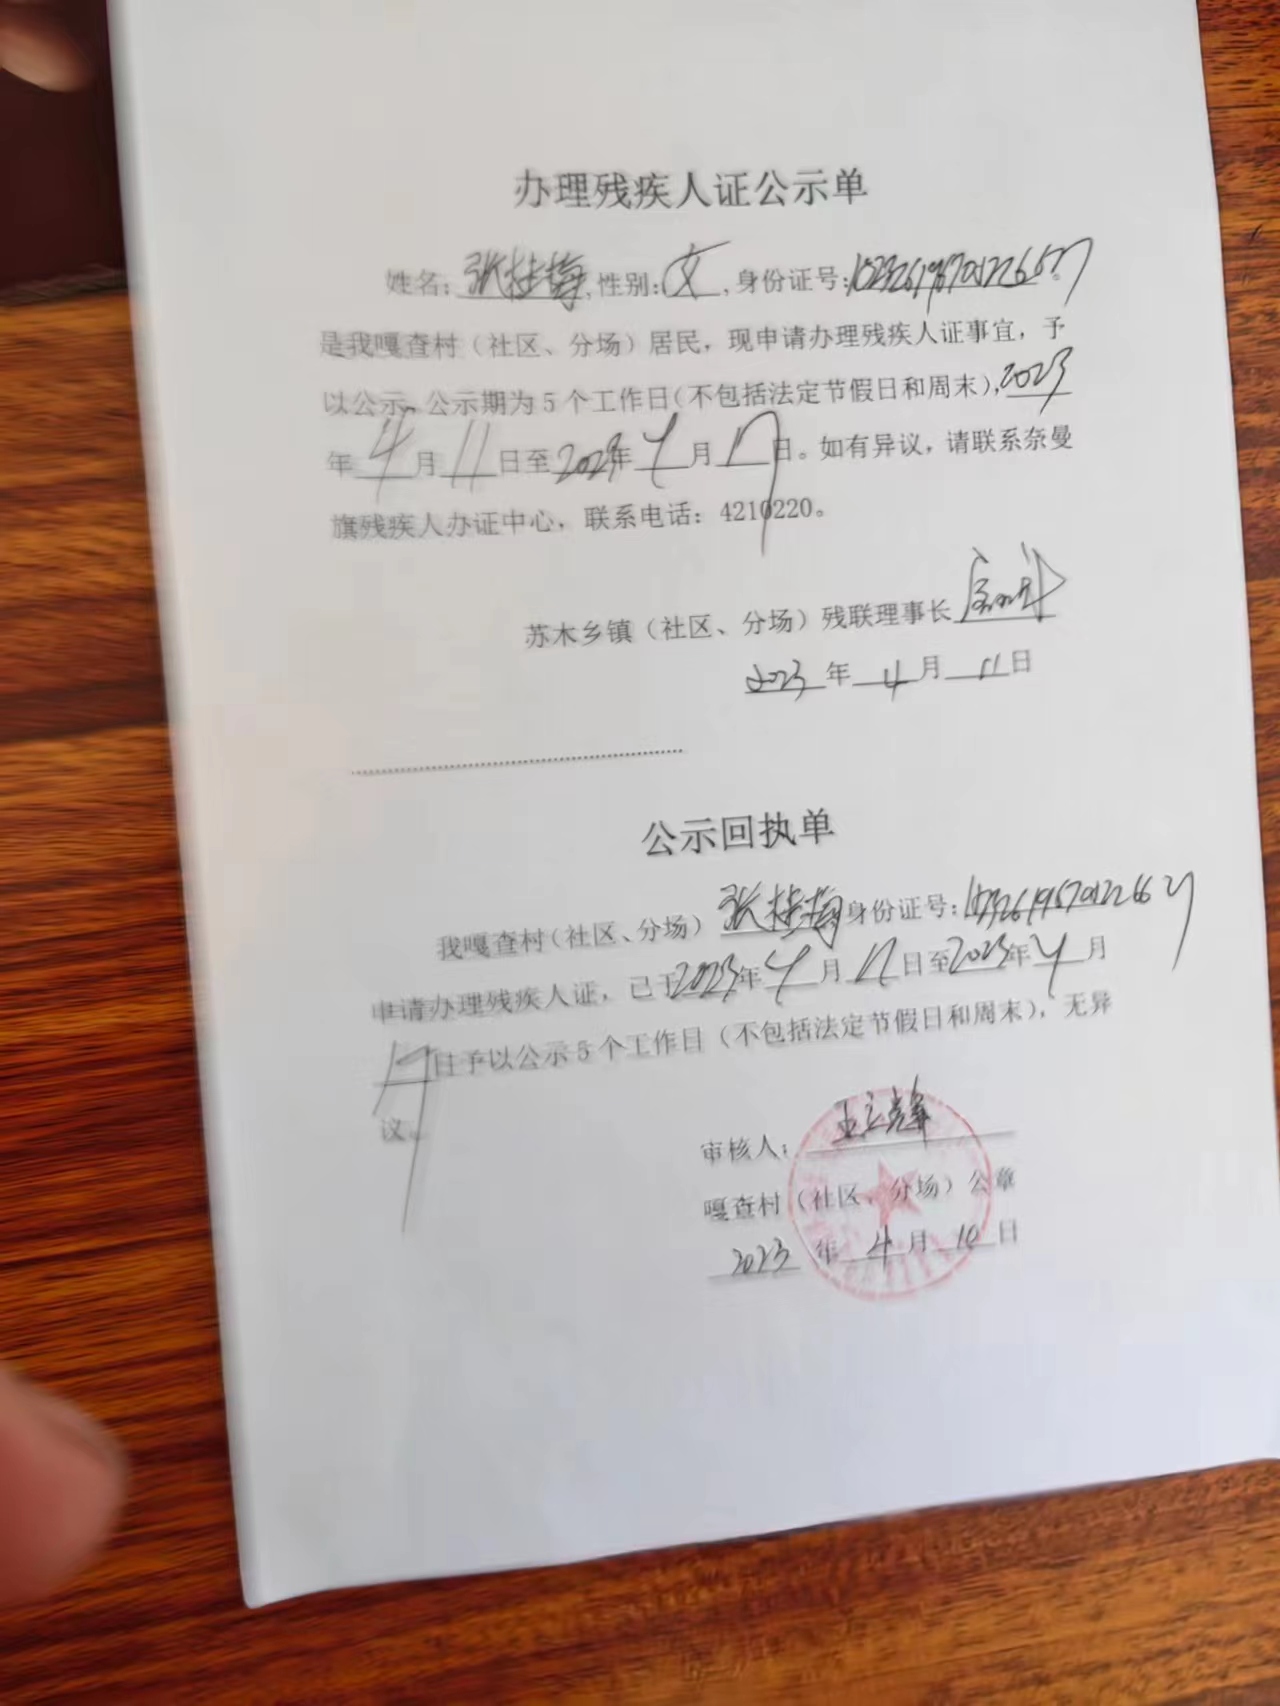 办理残疾人证公示单
姓名:张桂梅,性别:女,身份证号:
是我嘎查村（社区、分场）居民，现申请办理残疾人证事宜，予
以公示，公示期为5个工作日(不包括法定节假日和周末),2023
年4月11日至2023年4月17日。如有异议，请联系奈曼
旗残疾人办证中心，联系电话：4210220。
苏木乡镇（社区、分场）残联理事长
2023年4月11日
公示回执单
我嘎查村(社区、分场)张桂梅身份证号:
申请办理残疾人证，已于2023年4月11日至2023年4月
17日予以公示5个工作日（不包括法定节假日和周末)，无异
议。
审核人：
嘎查村（社区、分场）公章
2023年4月10日